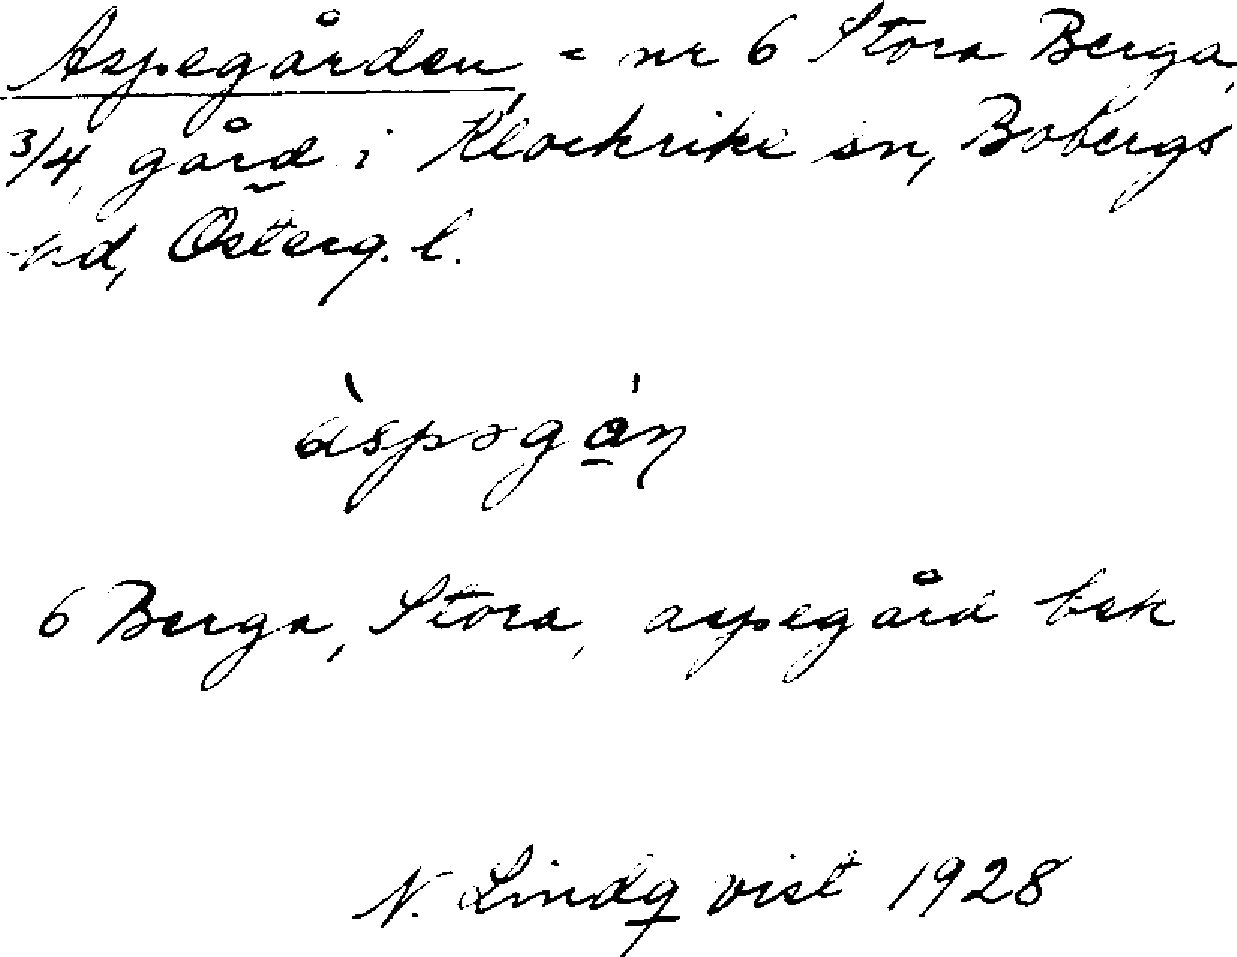 Aspegården = nr 6 Stora Berga,
3/4, gård i Klockrike sn, Bobergs
hd, Österg. l.
àspəgá̱ɳ
6 Berga, Stora, aspegård bek
N. Lindqvist 1928